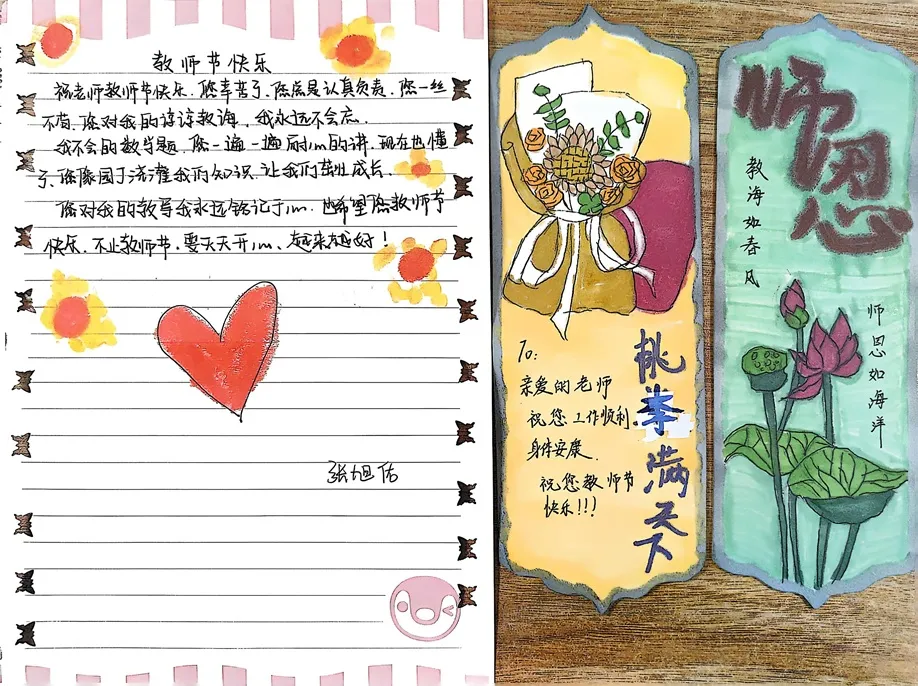 教师节快乐
祝老师教师节快乐.您辛苦了.您总是认真负责.您一丝
不苟.您对我的谆谆教诲,我永远不会忘.
我不会的数学题,您一遍一遍耐心的讲.现在也懂
了.您像园丁浇灌我们的知识.让我们茁壮成长.
您对我的教导我永远铭记于心.也希望您教师节
快乐.不止教师节,要天天开心、越来越好!
张旭佑
To:
亲爱的老师
祝您工作顺利.
身体安康.
祝您教师节
快乐!!!
桃李满天下
师恩
教海如春风
师恩如海洋